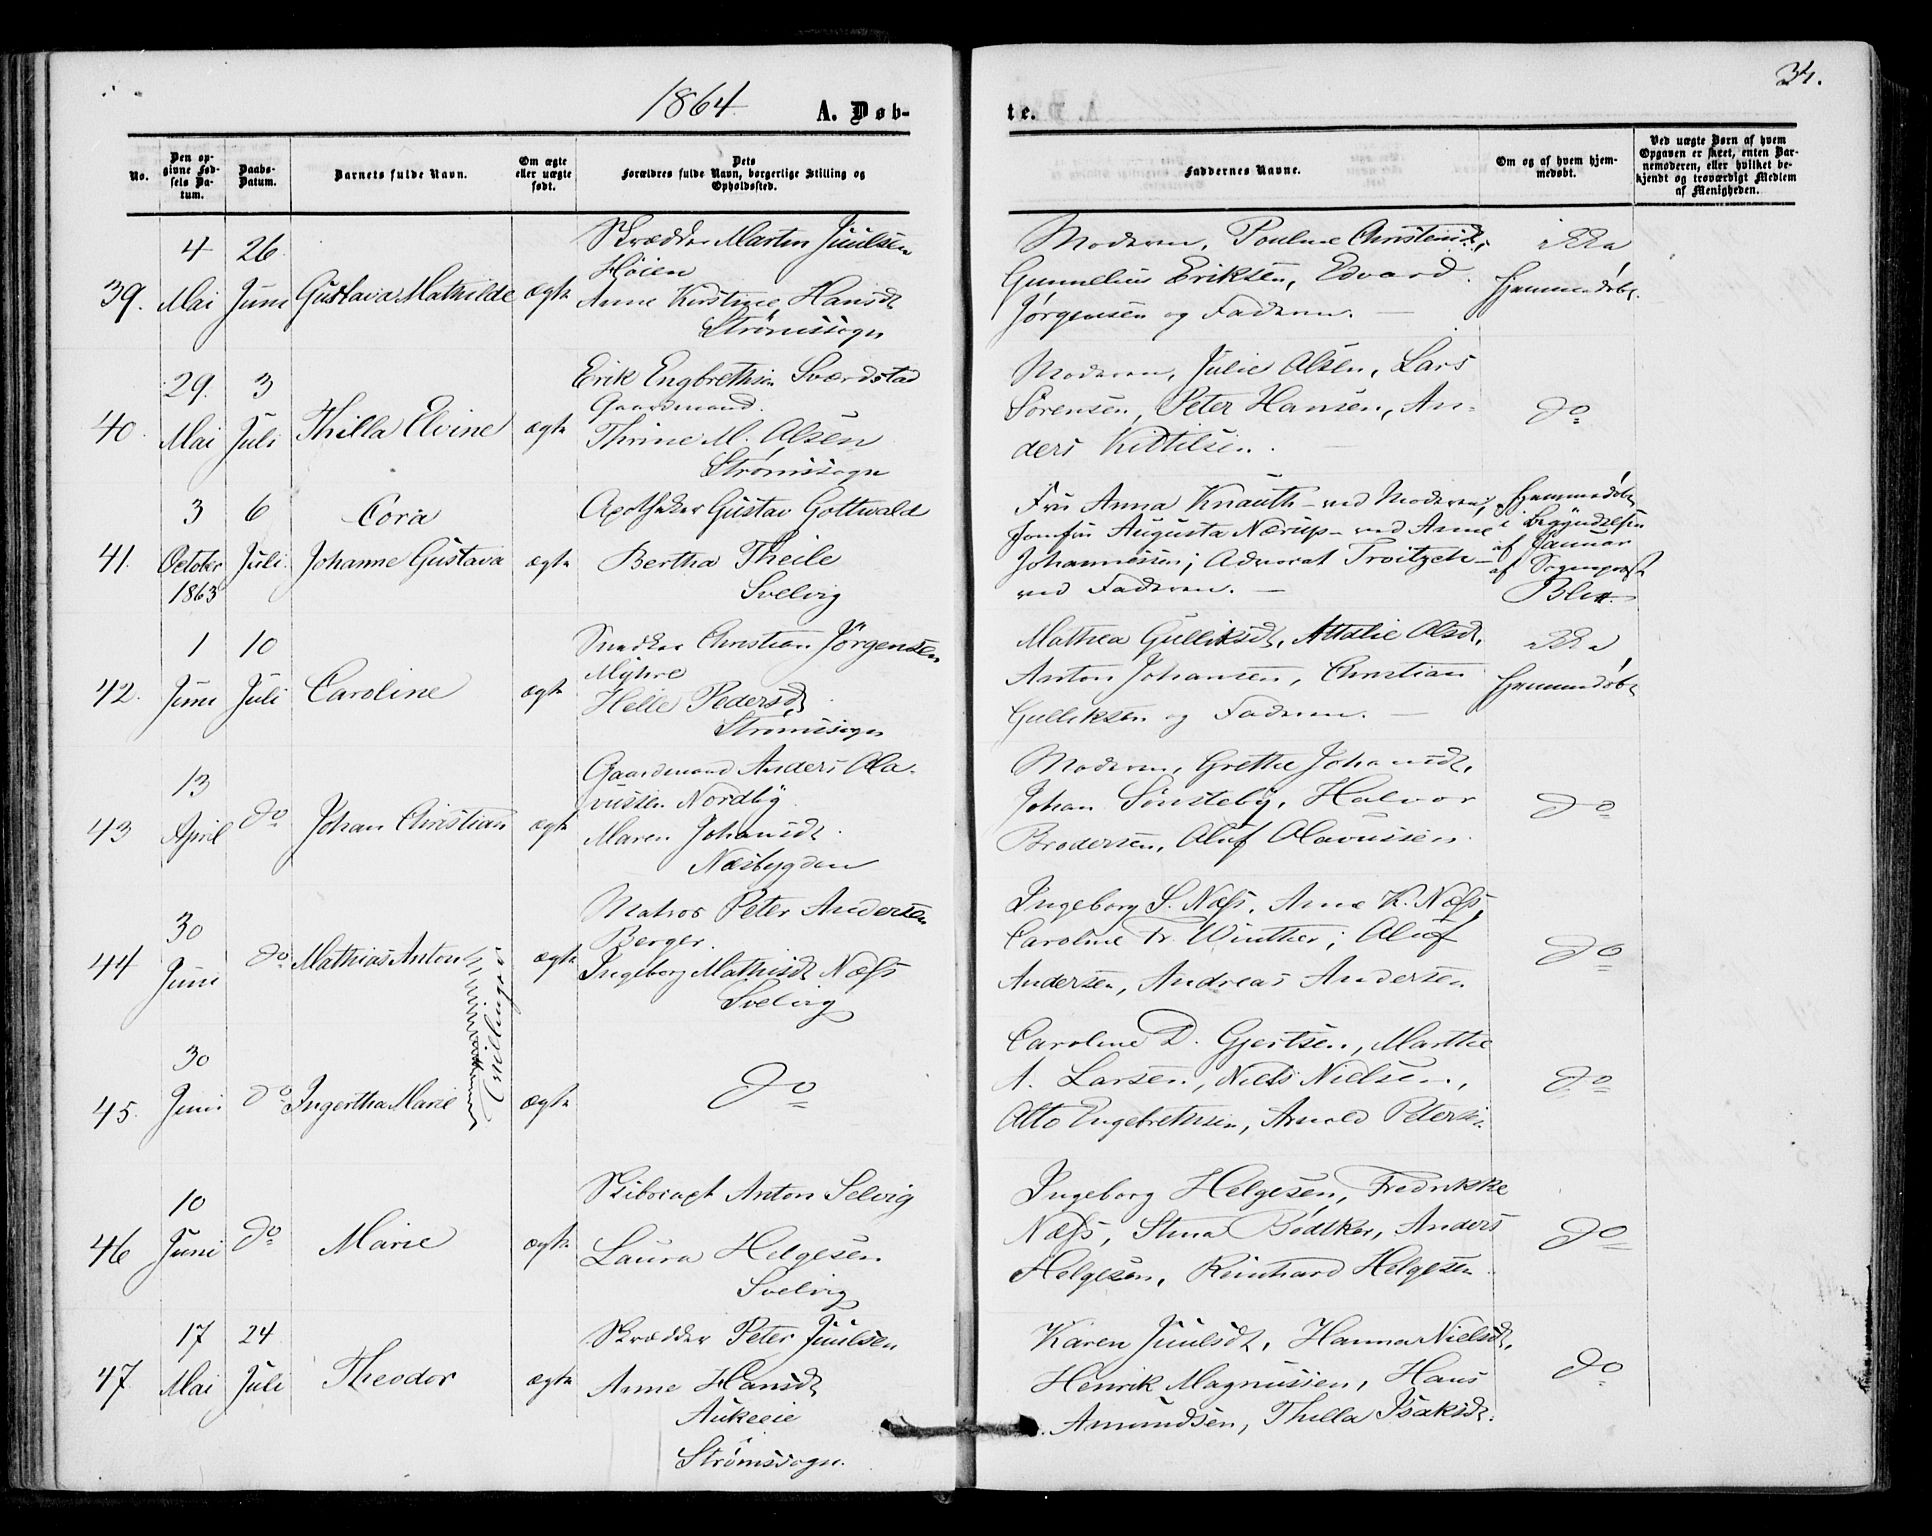 1864
A. Døb-
te.
34.
No.
Den op-
givne Fød-
sels Da-
tum.
Daabs-
Datum.
Barnets fulde Navn.
Om ægte
eller uægte
født.
Dets
Forældres fulde Navn, borgerlige Stilling og
Opholdssted.
Faddernes Navne.
Om og af hvem hjem-
medøbt.
Ved uægte Børn af hvem
Opgaven er skeet, enten Bar-
nemoderen, eller hvilket be-
kjendt og troværdigt Medlem
af Menigheden.
39.
4
Mai
26
Juni
Gustava Mathilde
ægte
Skrædder Martin Juulsen
Høien
Anne Kirstine Hansdt
Strømssogn
Moderen, Pouline Christensdt,
Gunnelius Eriksen, Edvard
Jørgensen og Faderen. —
ikke
hjemmedøbt
40.
29.
Mai
3
Juli
Thilla Elvine
ægte
Erik Engbrethsen Sværdstad
Gaardmand.
Thrine M. Olsen
Strømssogn
Moderen, Julie Olsen, Lars
Sørensen, Peter Hansen, An-
ders Kittilsen.
do
41.
3
October
1863
6
Juli
Cora
Johanne Gustava
ægte
Apotheker Gustav Gottwald
Bertha Theile
Svelvig
Fru Anna Knauth – ved Moderen;
Jomfru Augusta Nærup – ved Anne
Johannessen; Advorat Troitzch –
ved Faderen. —
hjemmedøbt
i Begyndelsen
af Januar
af Sognepræst
Blix
42.
1
Juni
10
Juli
Caroline
ægte
Snedker Christian Jørgensen
Myhre
Helle Pedersdt
Strømssogn
Mathea Gulliksdt, Attalie Olsdt,
Anton Johansen, Christian
Gulliksen og Faderen. —
ikke
hjemmedøbt
43
13
April
do
Johan Christian
ægte
Gaardmand Anders Ola-
vussen Nordby
Maren Johansdt
Næsbygden
Moderen, Grethe Johansdt,
Johan Sønsteby, Halvor
Brodersen, Oluf Olavussen
do
44
30
Juni
do
Mathias Anton
Tvillinger
ægte
Matros Peter Andersen
Berger.
Ingeborg Mathisdt Næss
Svelvig
Ingeborg S. Næss, Anne K. Næss,
Caroline Fr. Winther; Oluf
Andersen, Andreas Andersen
do
45.
30
Juni
do
Ingertha Marie
ægte
do
Caroline D. Gjertsen, Marthe
A. Larsen, Niels Nielsen,
Otto Engebrethsen, Arnold Petersen
do
46
10
Juni
do
Marie
ægte
Skibsragt Anton Selvig
Laura Helgesen
Svelvig
Ingeborg Helgesen, Fredrikke
Næss, Stina Bødtker, Anders
Helgesen, Reinhard Helgesen
do
47.
17
Mai
24
Juli
Theodor
ægte
Skrædder Peter Juulsen
Anne Hansdt
Aukeeie
Strømssogn.
Karen Juulsdt, Hanna Nielsdt,
Henrik Magnussen, Hans
Amundsen, Thilla Isaksdt.
do